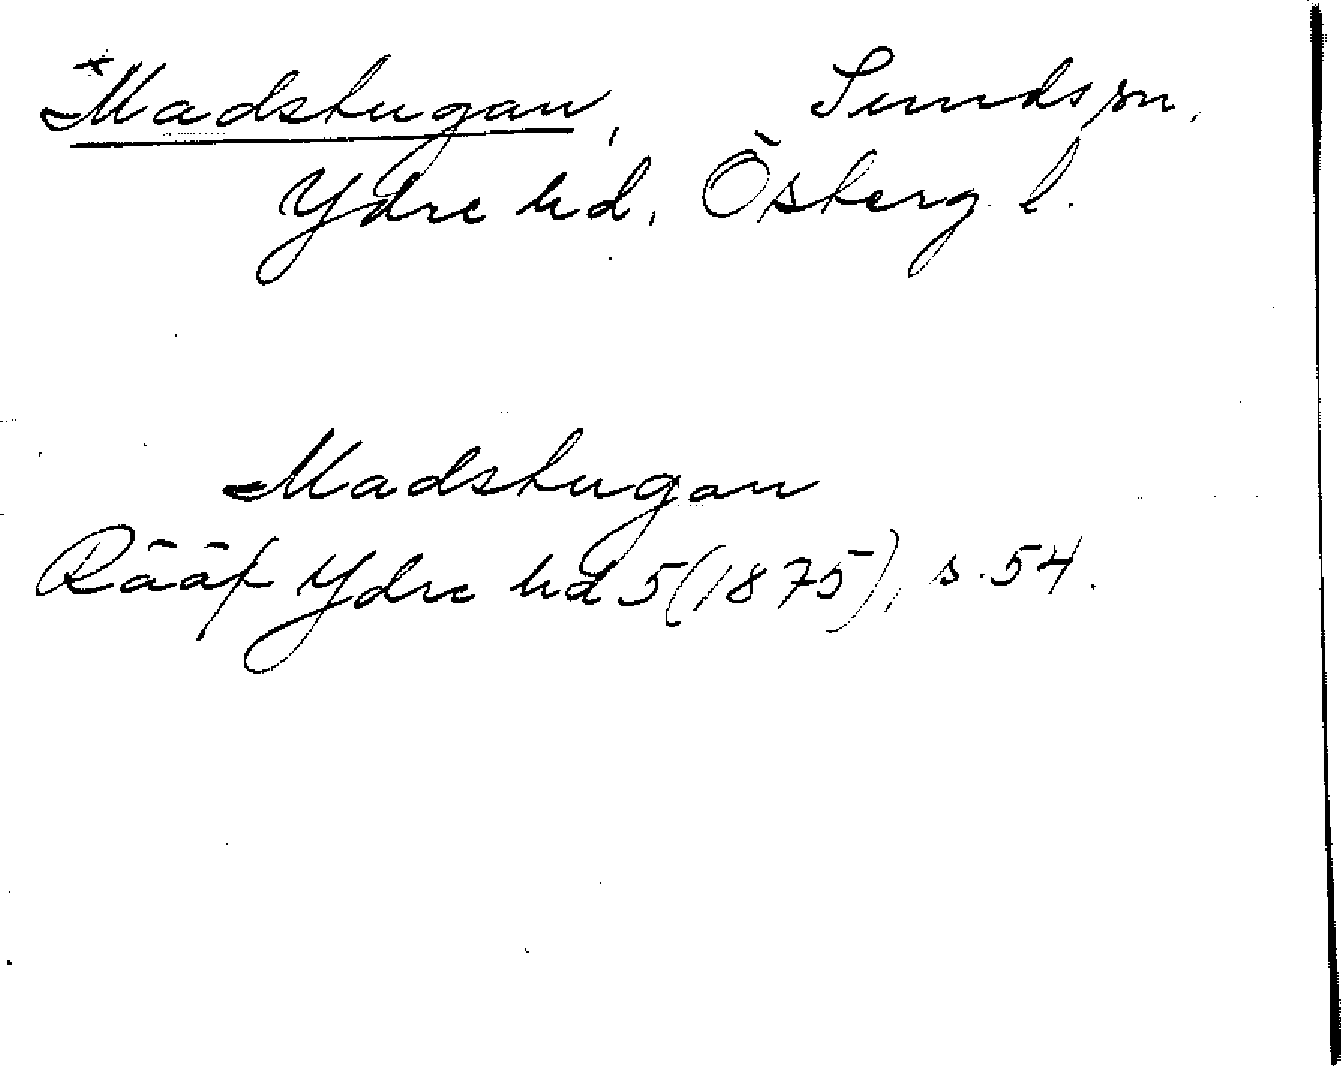 *Madstugan, Sunds sn,
Ydre hd, Österg l.
Madstugan
Rääf Ydre hd 5 (1875), s. 54.